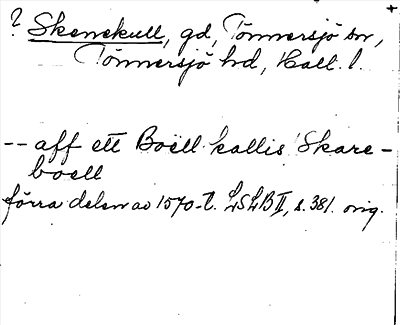 ? Skenekull, gd, Tönnersjö sn,
Tönnersjö hd, Hall. l.
-- aff ett Boell kallis Skare-
boell
förra delen av 1570-t. LSLB II, s. 381. orig.